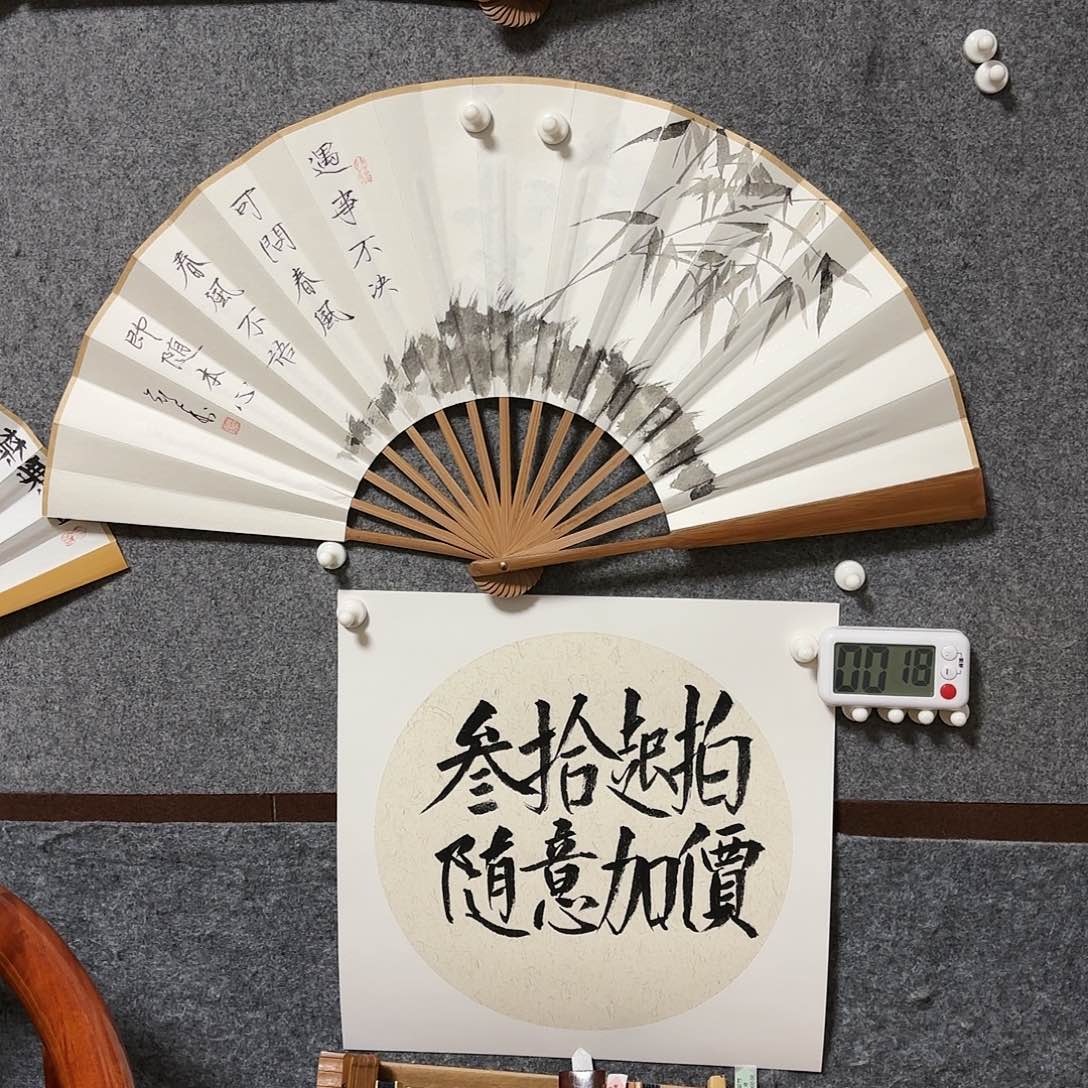 遇事不决
可問春風
春風不語
即随本心
叁拾起拍
随意加價
00 18